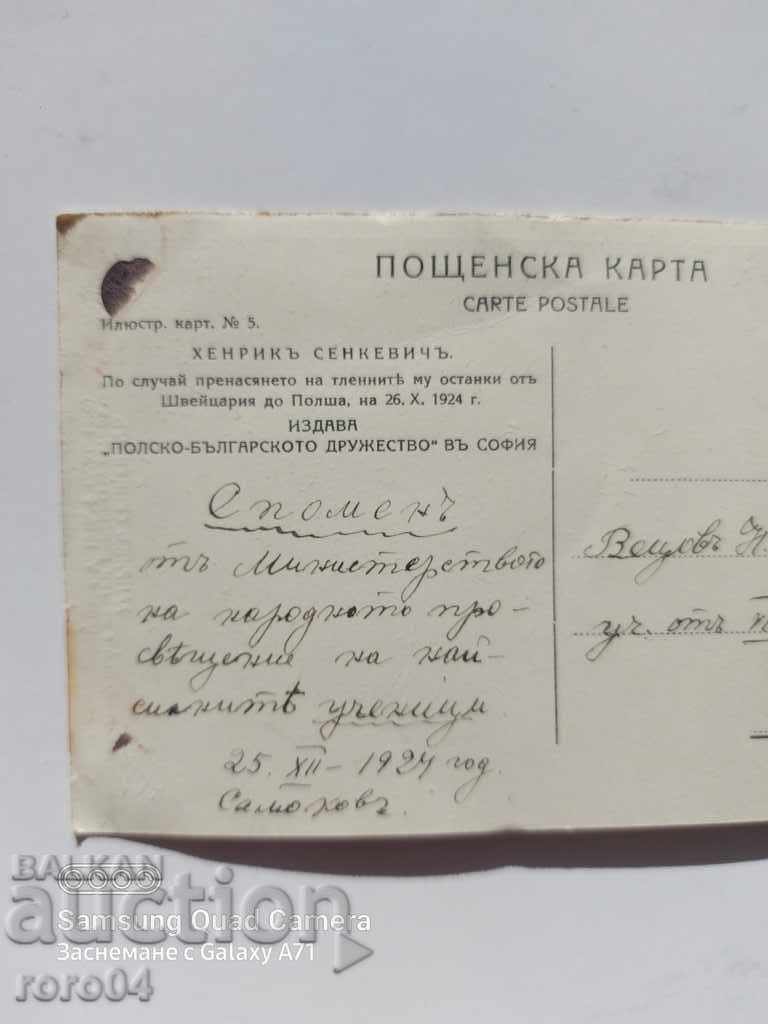 ПОЩЕНСКА КАРТА
CARTE POSTALE
Илюстр. карт. № 5.
ХЕНРИКЪ СЕНКЕВИЧЪ.
По случай пренасянето на тленнитѣ му останки отъ
Швейцария до Полша, на 26. X. 1924 г.
ИЗДАВА
„ПОЛСКО-БЪЛГАРСКОТО ДРУЖЕСТВО" ВЪ СОФИЯ
Споменъ
отъ Министерството
на народното про-
свѣщение на най-
силнитѣ ученици
25. XII – 1924 год.
Самоковъ.
уч. отъ
BALKAN
auction
Samsung Quad Camera
Заснемане с Galaxy A71
roro04